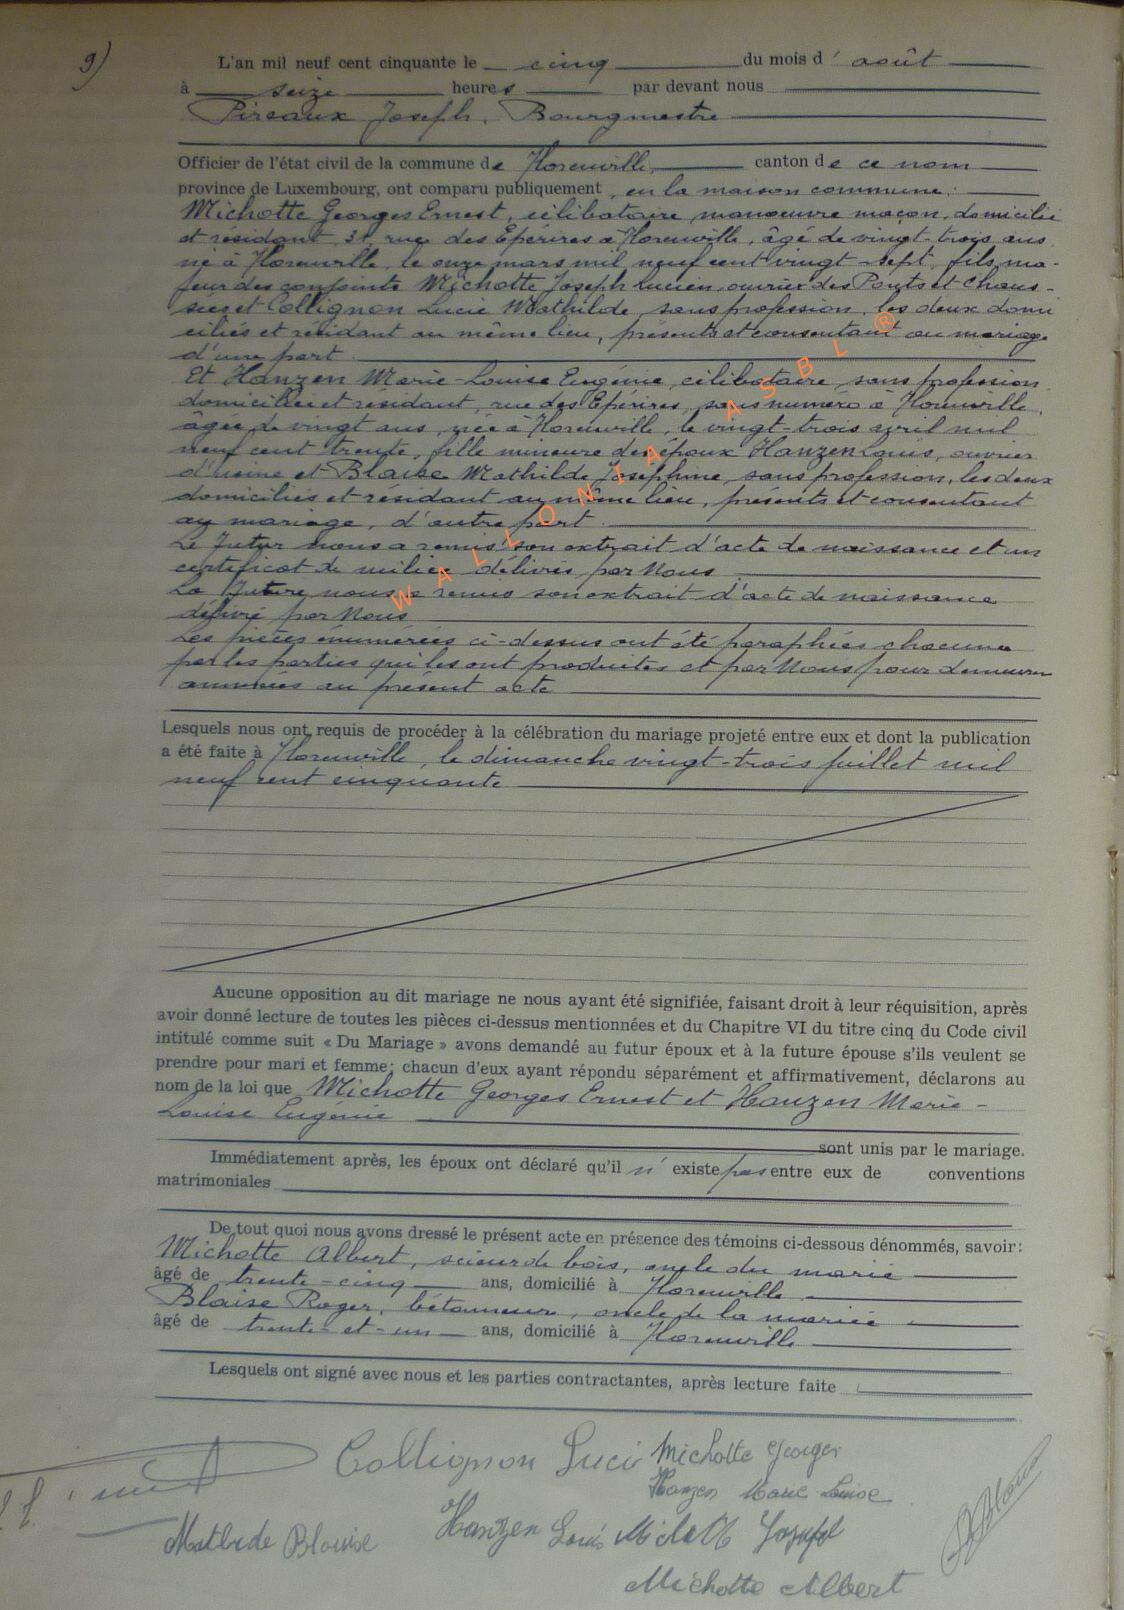 9)
L'an mil neuf cent cinquante le cinq du mois d' août
à seize heures par devant nous
Pireaux Joseph, Bourgmestre
Officier de l'état civil de la commune de Florenville, canton de ce nom
province de Luxembourg, ont comparu publiquement, en la maison commune :
Michotte Georges Ernest, célibataire, manoeuvre maçon, domicilié
et résidant, 31, rue des Epérires à Florenville, âgé de vingt-trois ans
né à Florenville, le onze mars mil neuf cent vingt-sept, fils ma-
jeur des conjoints Michotte Joseph Lucien, ouvrier des Ponts et Chaus-
sées et Collignon Lucie Mathilde, sans profession, les deux domi
ciliés et résidant au même lieu, présents et consentant au mariage
d'une part.
Et Hanzen Marie-Louise Eugénie, célibataire, sans profession
domiciliée et résidant, rue des Epérires, sans numéro à Florenville,
âgée de vingt ans, née à Florenville, le vingt-trois avril mil
neuf cent trente, fille mineure des époux Hanzen Louis, ouvrier
d'usine et Blaise Mathilde Joséphine, sans profession, les deux
domiciliés et résidant au même lieu, présents et consentant
au mariage, d'autre part.
Le Futur nous a remis son extrait d'acte de naissance et un
certificat de milice délivrés par Nous
La Future nous a remis son extrait d'acte de naissance
délivré par Nous
Les pièces énumérées ci-dessus ont été paraphées chacune
par les parties qui les ont produites et par Nous pour demeurer
annexées au présent acte
Lesquels nous ont requis de procéder à la célébration du mariage projeté entre eux et dont la publication
a été faite à Florenville, le dimanche vingt-trois juillet mil
neuf cent cinquante
Aucune opposition au dit mariage ne nous ayant été signifiée, faisant droit à leur réquisition, après
avoir donné lecture de toutes les pièces ci-dessus mentionnées et du Chapitre VI du titre cinq du Code civil
intitulé comme suit « Du Mariage » avons demandé au futur époux et à la future épouse s'ils veulent se
prendre pour mari et femme; chacun d'eux ayant répondu séparément et affirmativement, déclarons au
nom de la loi que Michotte Georges Ernest et Hanzen Marie-
Louise Eugénie
sont unis par le mariage.
Immédiatement après, les époux ont déclaré qu'il n' existe pas entre eux de conventions
matrimoniales
De tout quoi nous avons dressé le présent acte en présence des témoins ci-dessous dénommés, savoir:
Michotte Albert, scieur de bois, oncle du marié
âgé de trente-cinq ans, domicilié à Florenville
Blaise Roger, bétonneur, oncle de la mariée
âgé de trente-et-un ans, domicilié à Florenville
Lesquels ont signé avec nous et les parties contractantes, après lecture faite
Collignon Lucie Michotte Georges
Hanzen Marie Louise
Mathilde Blaise Hanzen Louis Michotte Joseph
R Blaise
Michotte Albert
WALLONIA ASBL ®